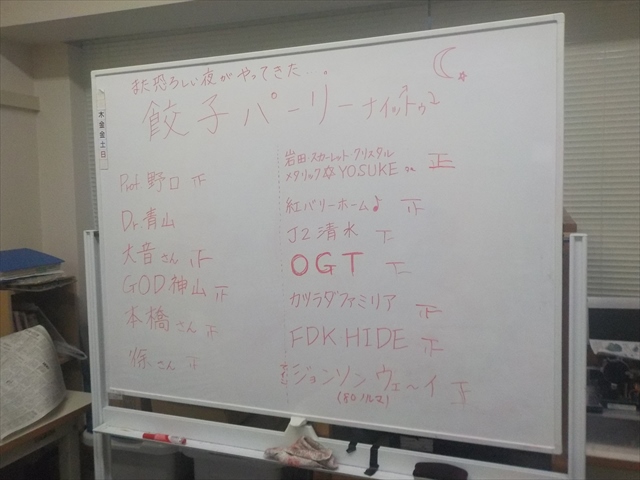 また恐ろしい夜がやってきた…
餃子パーリーナイッットゥ
木金金土日
Prof.野口 正
Dr.青山
大音さん 正
GOD神山 正
本橋さん 正
徐さん 正
岩田スカーレット クリスタル
メタリック☆YOSUKE 正
紅バリーホーム♪ 正
J2清水
OGT
カツラダファミリア 正
FDK HIDE 正
ジョンソン ウェ〜イ 正
(80ノルマ)